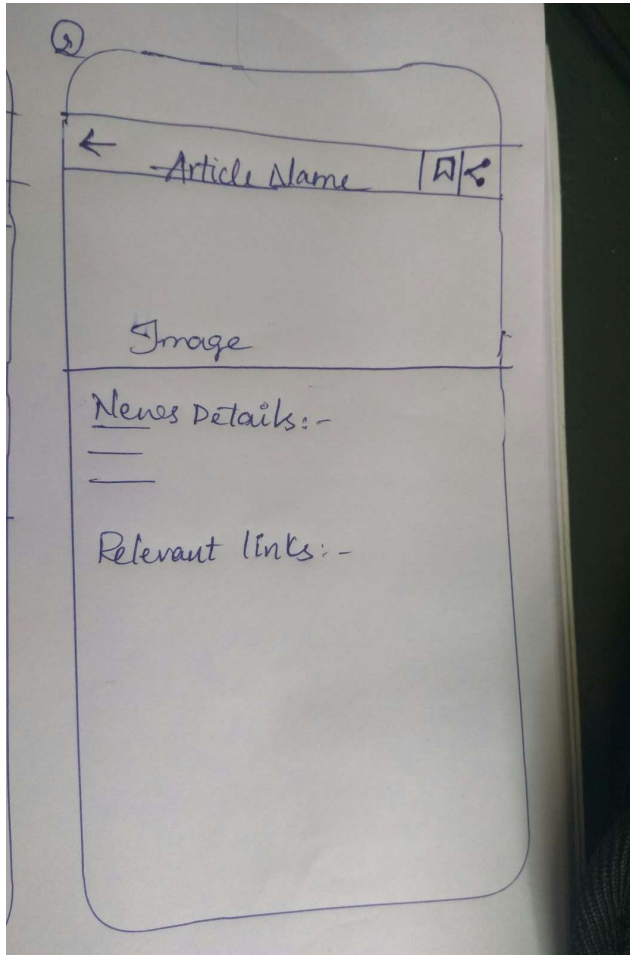 Article Name
Image
News Details:-
Relevant links:-